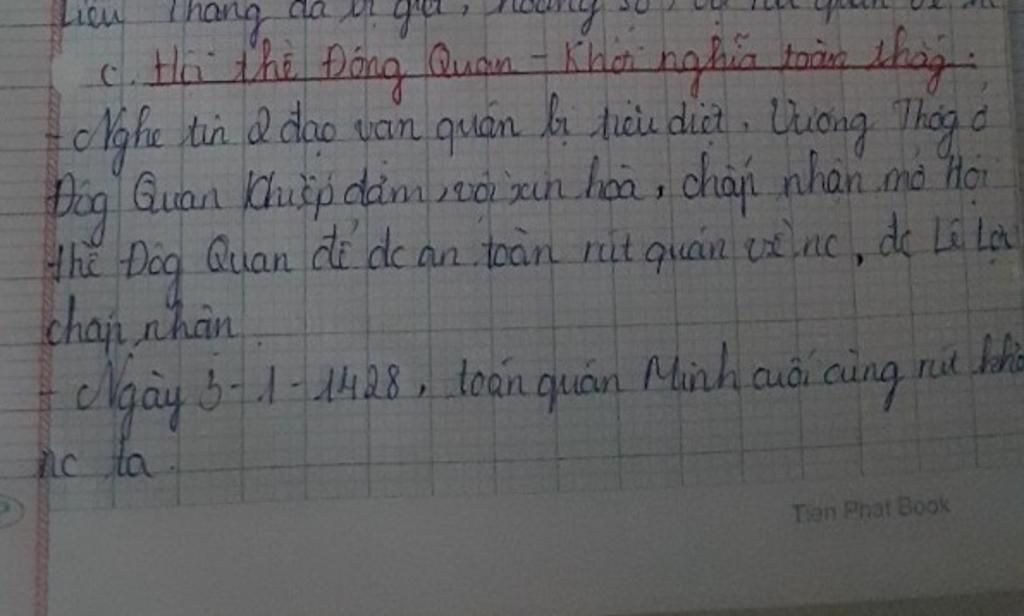 Liễu Thăng đã bị giết, hoảng sợ, vội rút quân về
c. Hội thề Đông Quan - Khởi nghĩa toàn thắg:
- Nghe tin 2 đạo vạn quân bị tiêu diệt, Vương Thôg ở
Đôg Quan khiếp đảm, vội xin hoà, chấp nhận mở Hội
thề Đôg Quan để dc an toàn rút quân về nc, dc Lê Lợi
chấp nhận.
- Ngày 3-1-1428, toán quân Minh cuối cùng rút khỏi
nc ta.
Tien Phat Book